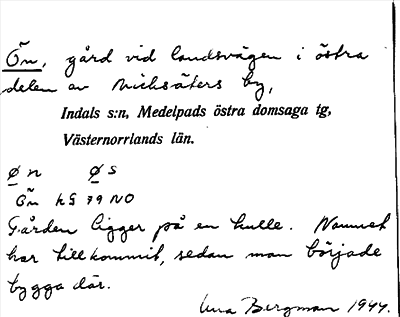 Ön, gård vid landsvägen i östra
delen av Nichsäters by,
Indals s:n, Medelpads östra domsaga tg,
Västernorrlands län.
Ø n Ø s
Ön kS 79 NO
Gården ligger på en kulle. Namnet
har tillkommit, sedan man började
bygga där.
Una Bergman 1944.